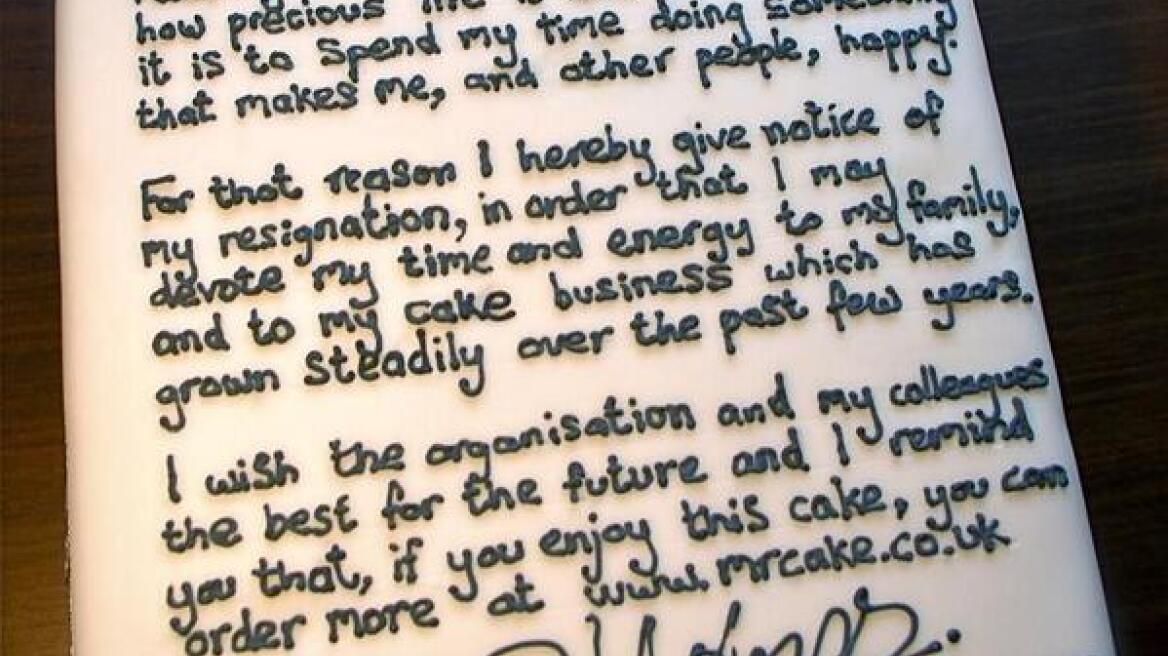 how precious life is
it is to spend my time doing something
that makes me, and other people, happy.
For that reason I hereby give notice of
my resignation, in order that I may
devote my time and energy to my family,
and to my cake business which has
grown steadily over the past few years.
I wish the organisation and my colleagues
the best for the future and I remind
you that, if you enjoy this cake, you can
order more at www.mrcake.co.uk